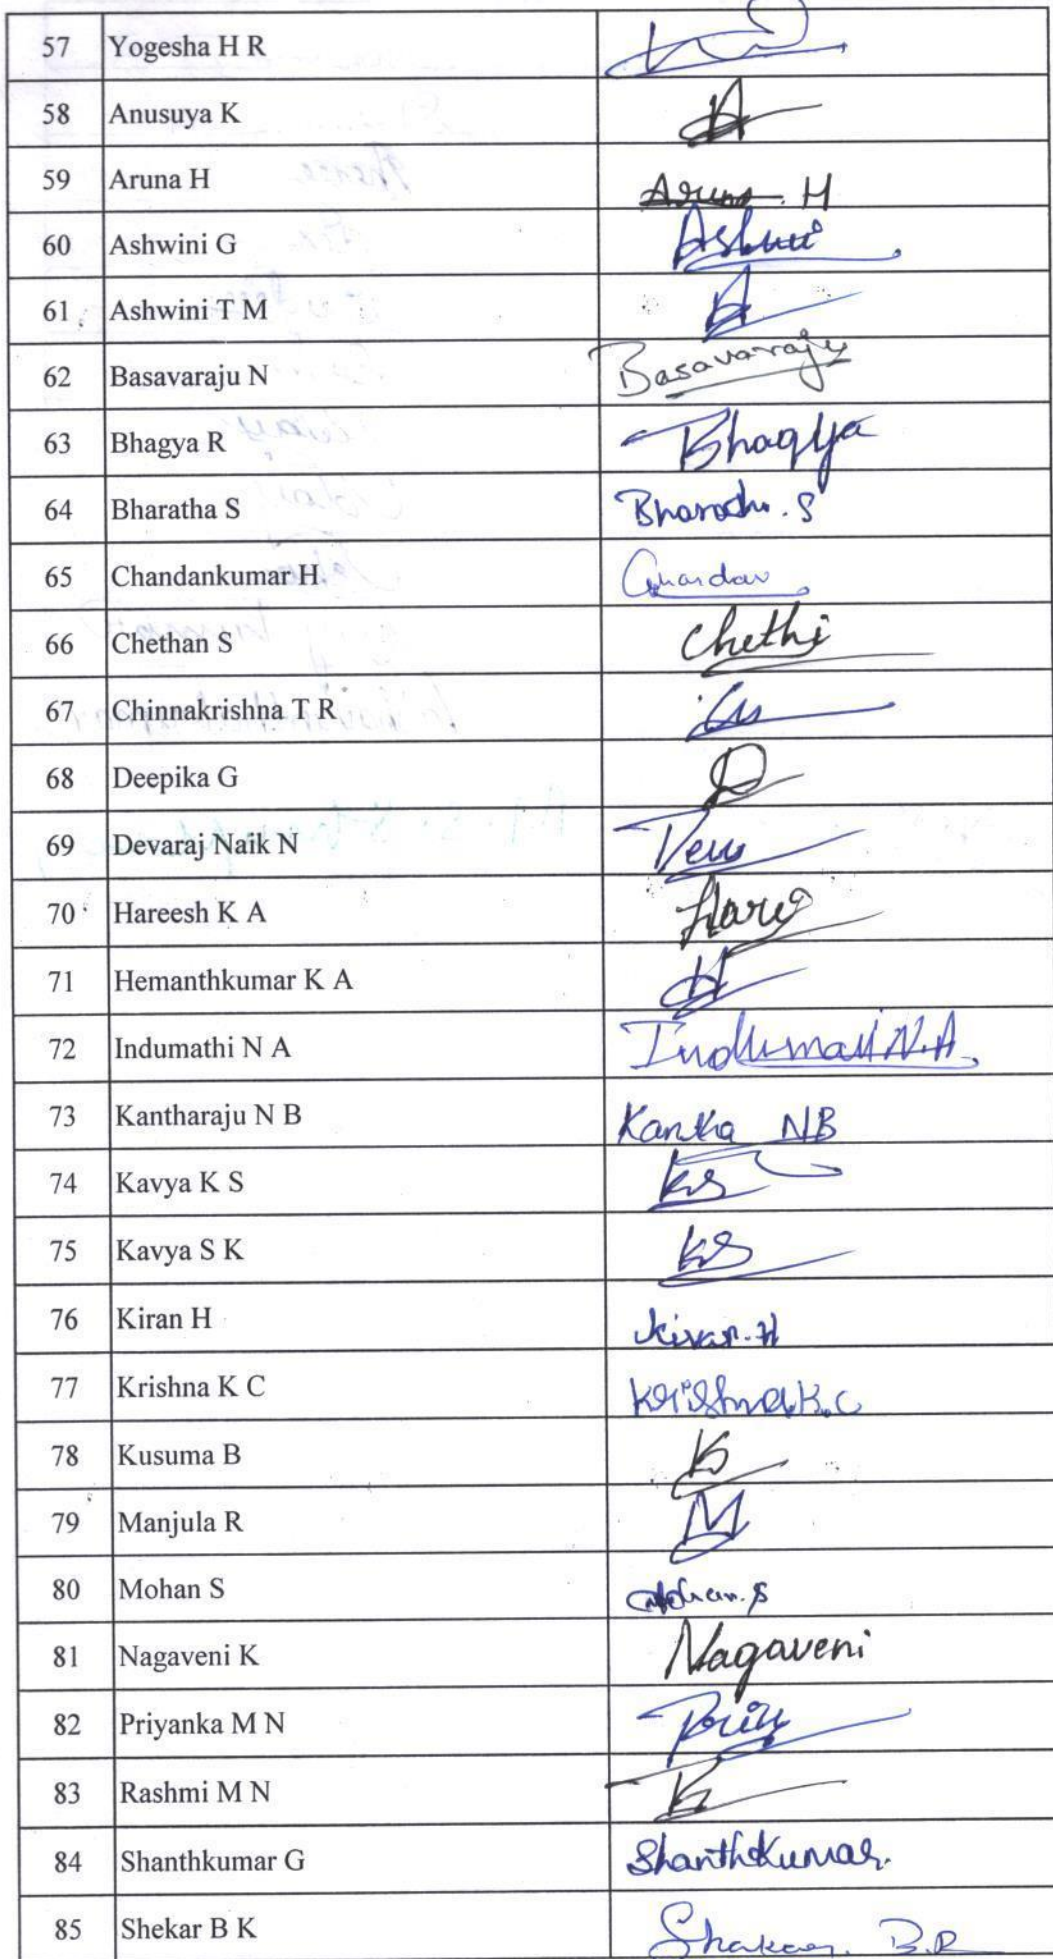 57 Yogesha H R
58 Anusuya K A
59 Aruna H Aruna. H
60 Ashwini G Ashwini
61 Ashwini T M A
62 Basavaraju N Basavaraju
63 Bhagya R Bhagya
64 Bharatha S
65 Chandankumar H Chandan
66 Chethan S Chethi
67 Chinnakrishna T R
68 Deepika G D
69 Devaraj Naik N
70 Hareesh K A
71 Hemanthkumar K A H
72 Indumathi N A Indumathi N.A.
73 Kantharaju N B Kantha NB
74 Kavya K S KS
75 Kavya S K KS
76 Kiran H Kiran.H
77 Krishna K C Krishna K.C
78 Kusuma B K
79 Manjula R M
80 Mohan S Mohan.S
81 Nagaveni K Nagaveni
82 Priyanka M N Priy
83 Rashmi M N R
84 Shanthkumar G Shanthkumar.
85 Shekar B K